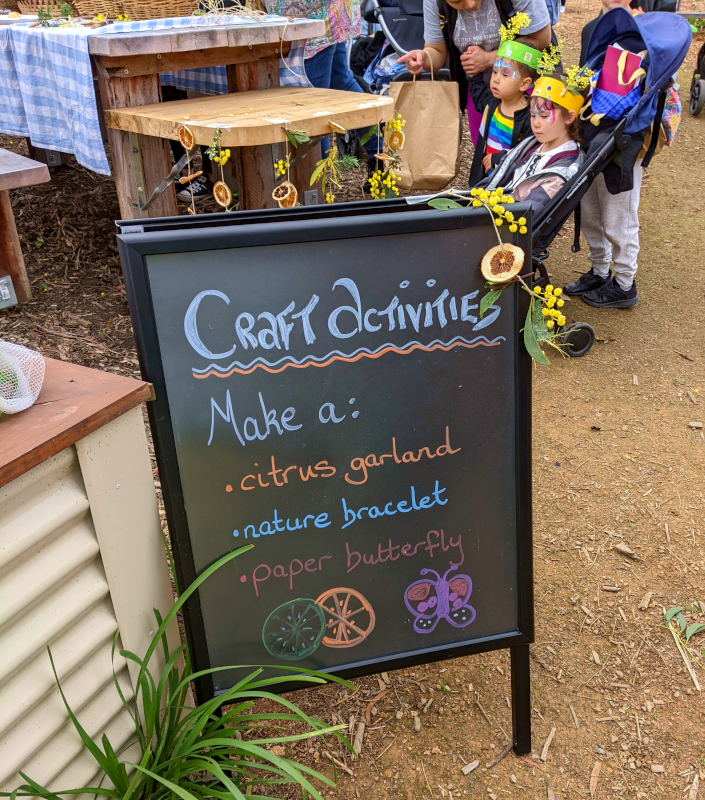 Craft Activities
Make a:
• citrus garland
• nature bracelet
• paper butterfly